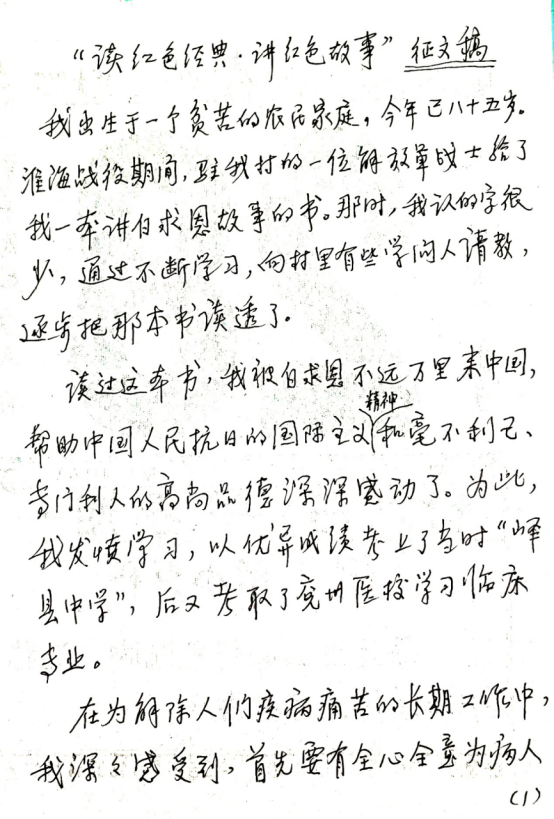 “读红色经典·讲红色故事”征文稿
我出生于一个贫苦的农民家庭，今年已八十五岁。
淮海战役期间，驻我村的一位解放军战士给了
我一本讲白求恩故事的书。那时，我认的字很
少，通过不断学习，向村里有些学问人请教，
逐步把那本书读透了。
读过这本书，我被白求恩不远万里来中国，
精神
帮助中国人民抗日的国际主义和毫不利己、
专门利人的高尚品德深深感动了。为此，
我发愤学习，以优异成绩考上了当时“峄
县中学”，后又考取了兖州医校学习临床
专业。
在为解除人们疾病痛苦的长期工作中，
我深々感受到，首先要有全心全意为病人
(1)